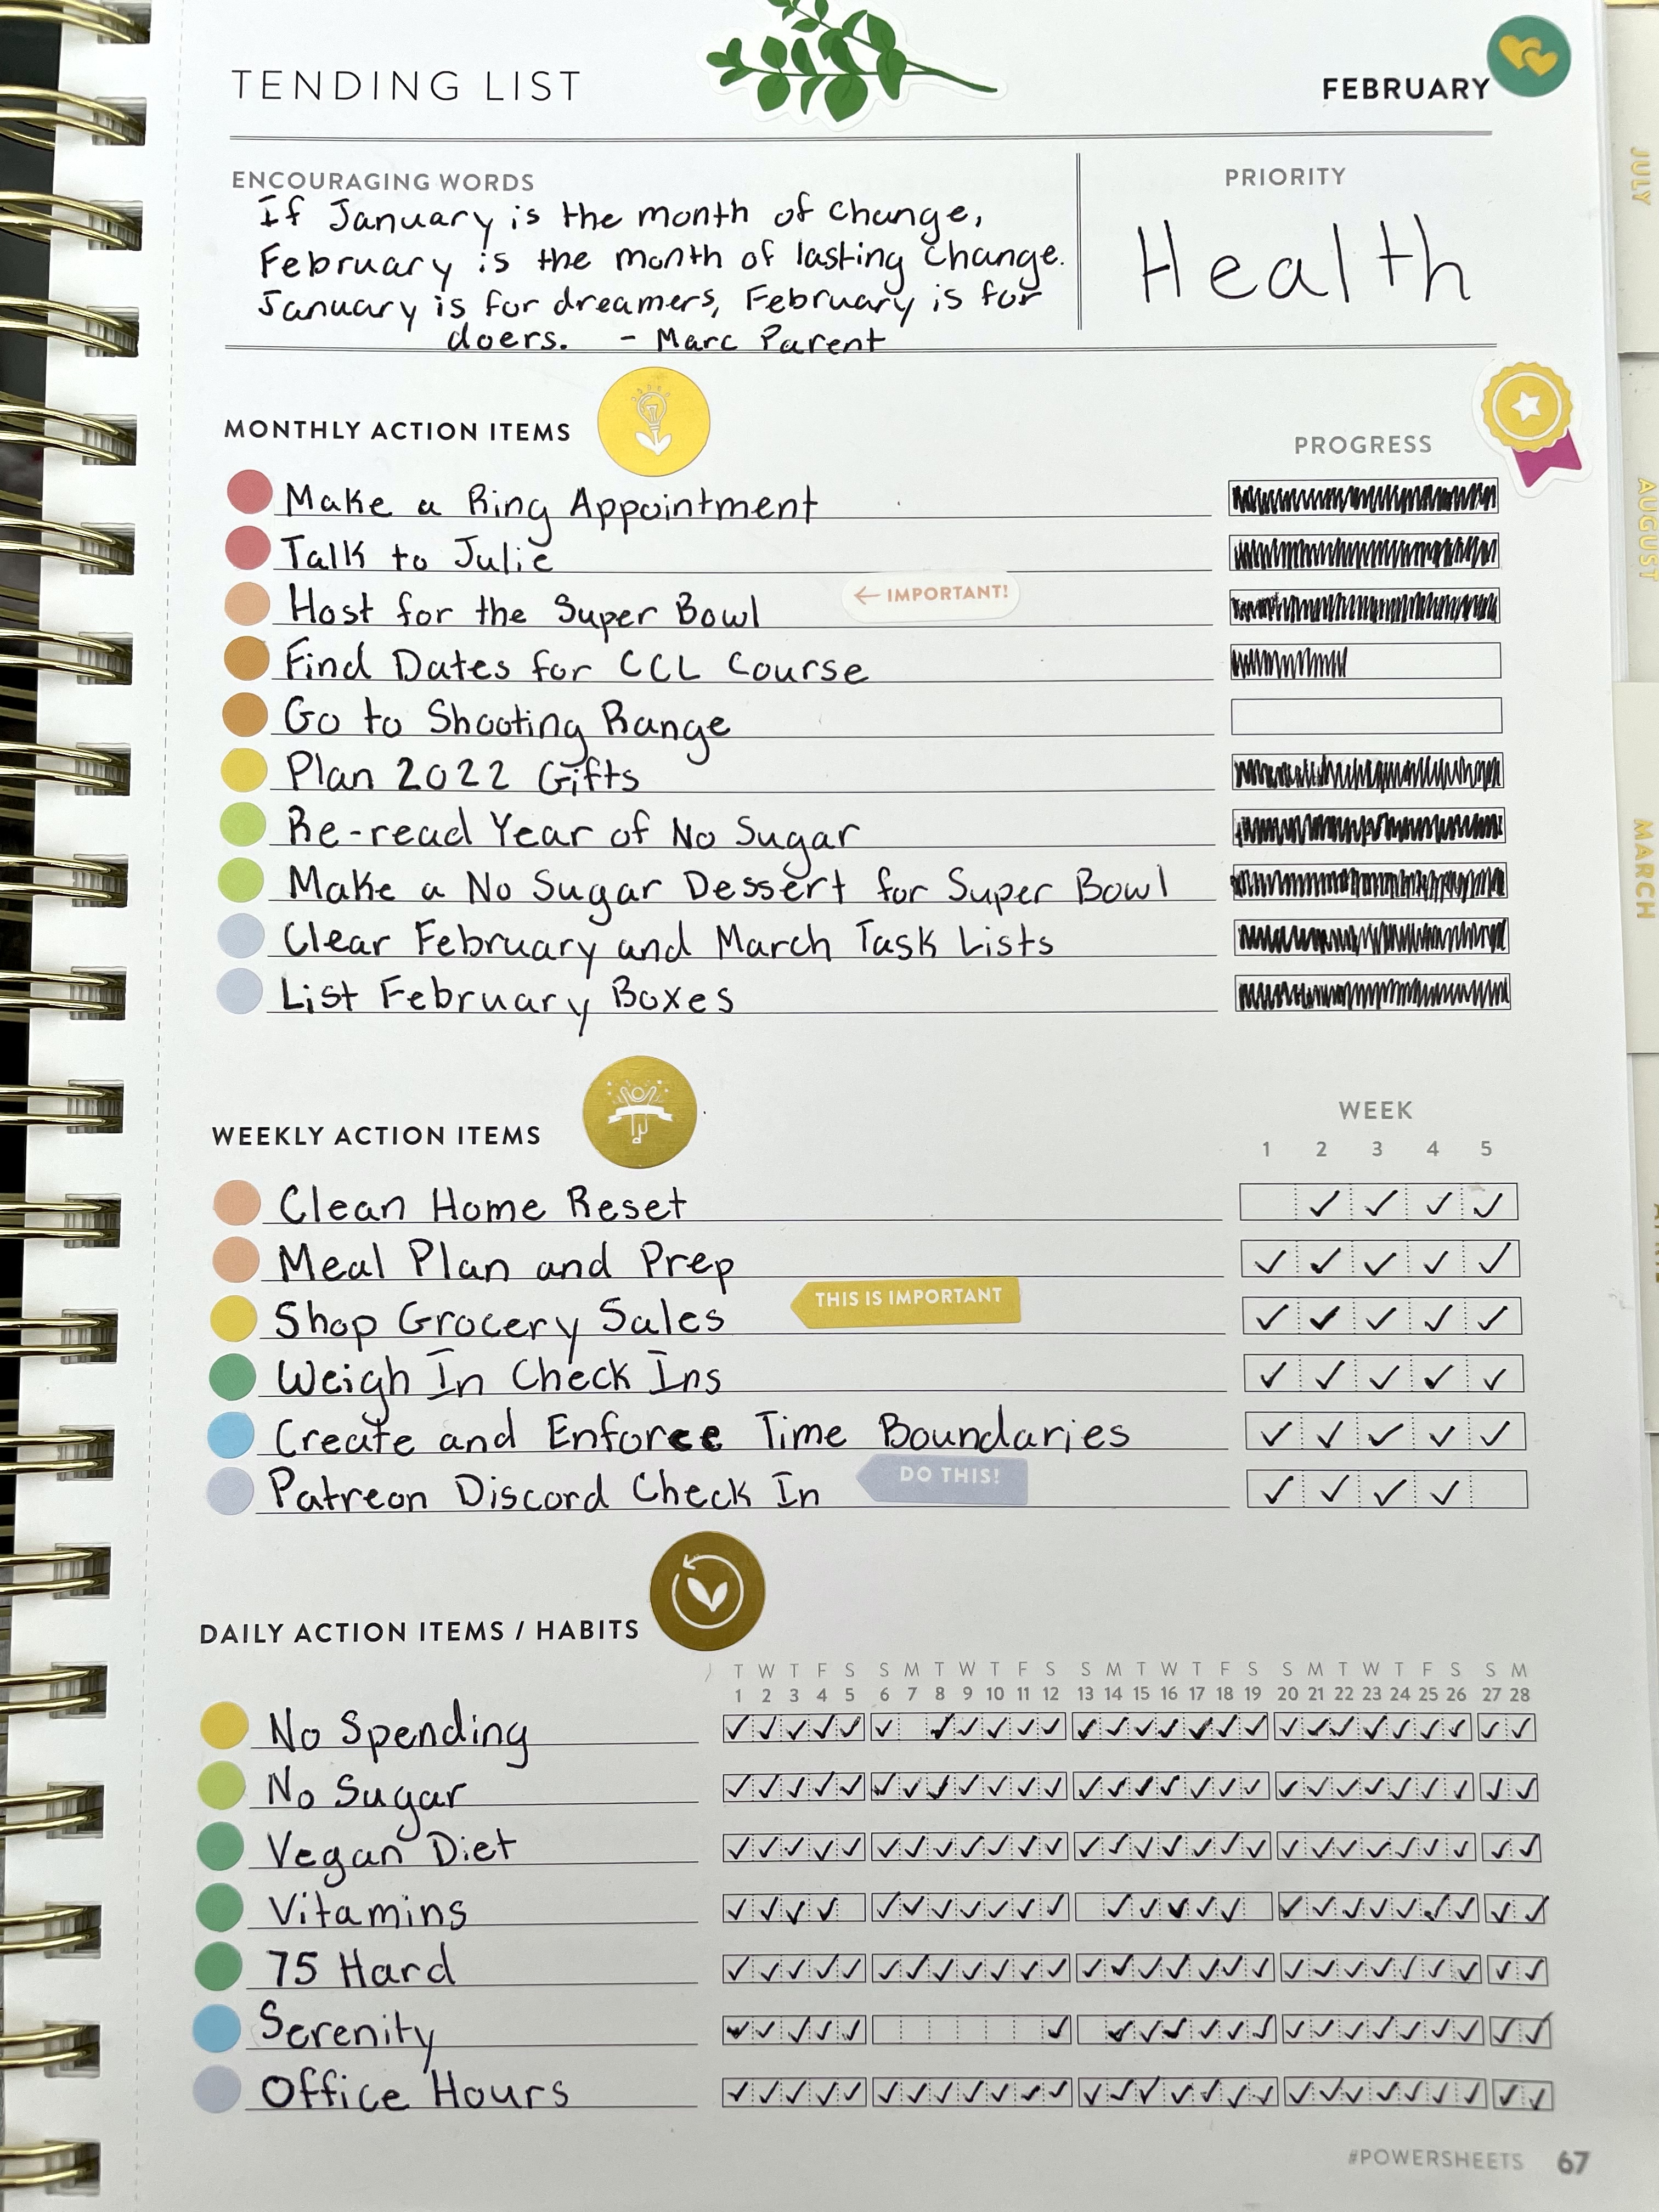 TENDING LIST
FEBRUARY
ENCOURAGING WORDS
If January is the month of change,
February is the month of lasting change.
January is for dreamers, February is for
doers. - Marc Parent
PRIORITY
Health
MONTHLY ACTION ITEMS
PROGRESS
Make a Ring Appointment
Talk to Julie
Host for the Super Bowl
← IMPORTANT!
Find Dates for CCL Course
Go to Shooting Range
Plan 2022 Gifts
Re-read Year of No Sugar
Make a No Sugar Dessert for Super Bowl
Clear February and March Task Lists
List February Boxes
WEEKLY ACTION ITEMS
WEEK
1 2 3 4 5
Clean Home Reset
Meal Plan and Prep
Shop Grocery Sales
THIS IS IMPORTANT
Weigh In Check Ins
Create and Enforce Time Boundaries
Patreon Discord Check In
DO THIS!
DAILY ACTION ITEMS / HABITS
T W T F S S M T W T F S S M T W T F S S M T W T F S S M
1 2 3 4 5 6 7 8 9 10 11 12 13 14 15 16 17 18 19 20 21 22 23 24 25 26 27 28
No Spending
No Sugar
Vegan Diet
Vitamins
75 Hard
Serenity
Office Hours
#POWERSHEETS 67
JULY
AUGUST
MARCH